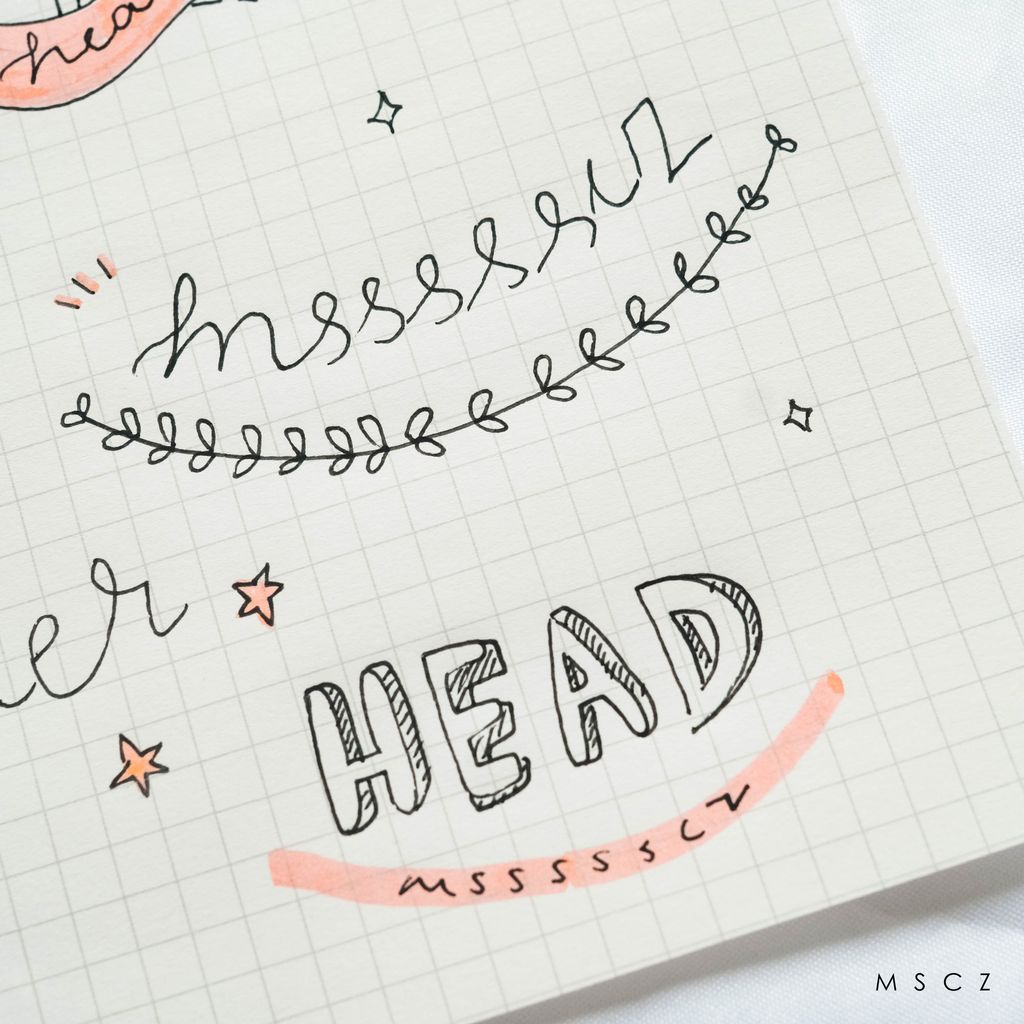 hea
mssssscz
er
HEAD
mssssscz
MSCZ